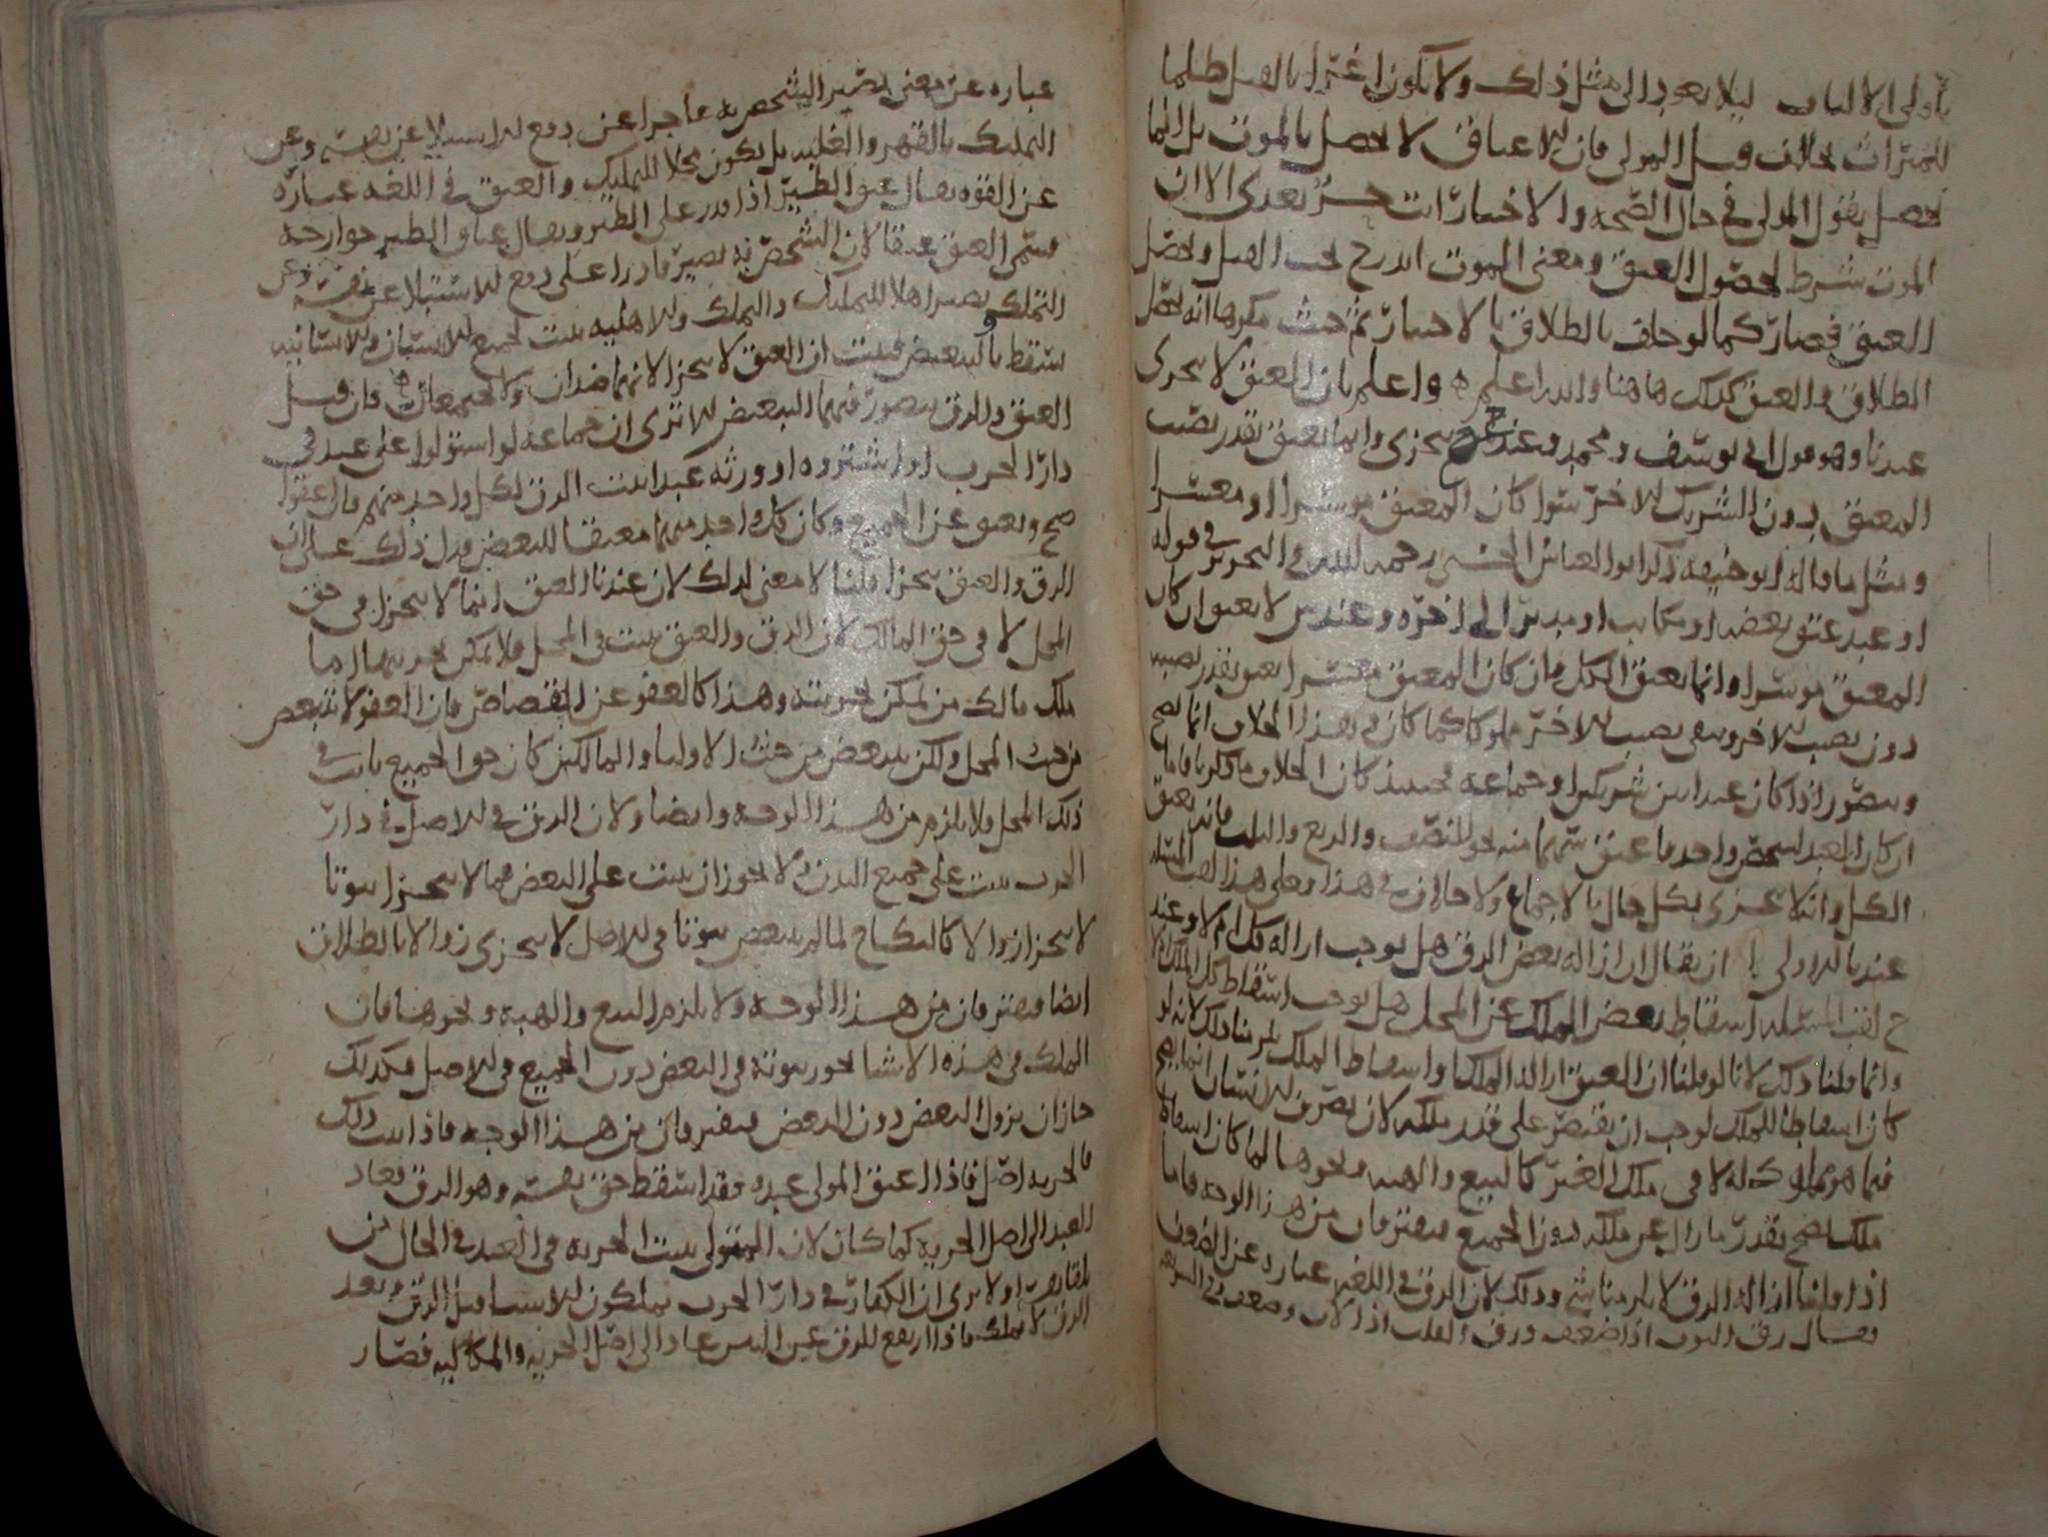 يا اولى الالباب ليلا يعود الى مثل ذلك ولا يكون اغترارا بالقتل طلبا
للميراث بخلاف قتل المولى فان الاعتاق لا يحصل بالموت بل انما
يحصل بقول المولى في حال الصحة والاختيار انت حر بعدى الا ان
الموت شرط لحصول العتق ومعنى الموت اندرج تحت القتل وتحصل
العتق فصار كما لو حلف بالطلاق بالاختيار ثم حنث مكرها انه يحصل
الطلاق والعتق كذلك هاهنا والله اعلم واعلم بان العتق لا يتجزى
عندنا وهو قول ابي يوسف ومحمد وعند ح يتجزى وانما يعتق بقدر نصيب
المعتق دون الشريك الاخر سوا كان المعتق موسرا او معسرا
ومثل ما قاله ابو حنيفة ذكر ابو العباس الحسني رحمه الله في التحرير في قوله
او عبد عتق بعضه او مكاتب او مدبر الى اخره وعند ش لا يعتق ان كان
المعتق موسرا وانما يعتق الكل فان كان المعتق معسرا يعتق بقدر نصيبه
دون نصيب الاخر وبقى نصيب الاخر مملوكا كما كان وهذا الخلاف انما يصح
ويتصور اذا كان عبدا بين شريكين او جماعة فحينئذ كان الخلاف ما ذكرنا فاما
ان كان العبد لشخص واحد فاعتق سهما منه نحو النصف والربع والثلث فانه يعتق
الكل وانه لا يتجزى بكل حال بالاجماع ولا خلاف في هذا وعلى هذا لقب المسئلة
عندنا الاولى ان يقال ان ازالة بعض الرق هل يوجب ازالة كله ام لا وعند
ح لقب المسئلة اسقاط بعض الملك عن المحل هل يوجب اسقاط كل الملك ام لا
وانما قلنا ذلك لانا لو قلنا ان العتق ازالة الملك واسقاط الملك يلزمنا ذلك لانه لو
كان اسقاطا للملك لوجب ان يقتصر على قدر ملكه لان تصرف الانسان انما يصح
فيما هو مملوك له لا في ملك الغير كالبيع والهبه ونحوهما لما كان اسقاط
ملك صح بقدر ما زال عن ملكه دون الجميع فيفترقان من هذا الوجه فاما
اذا قلنا ازالة الرق لا يلزمنا شي وذلك لان الرق في اللغه عباره عن الضعف
يقال رق الثوب اذا ضعف ورق القلب اذا لان وضعف وفي الشريعه
عباره عن معنى يصير الشخص به عاجزا عن دفع الاستيلا عن نفسه وعن
التمليك بالقهر والغلبه بل يكون محلا للتمليك والعتق في اللغه عباره
عن القوه يقال عتق الطير اذا قدر على الطير ويقال عتاق الطير جوارحه
فسمى العتق عتقا لان الشخص به يصير قادرا على دفع الاستيلا عن نفسه وعن
التملك ويصير اهلا للتمليك والتملك والاهليه تثبت لجميع الانسان والانسانيه
سقط بالتبعيض فثبت ان العتق لا يتجزا لانهما ضدان ولا يجتمعان فان قيل
العتق والرق يتصور فيهما التبعيض الا ترى ان جماعة لو استولوا على عبد في
دار الحرب او اشتروه او ورثه عبدا يثبت الرق لكل واحد منهم فان اعتقوا
صح ويعتق عن الجميع وكان كل واحد منهما معتقا للبعض فدل ذلك على ان
الرق والعتق يتجزا قلنا لا معنى لذلك لان عندنا العتق انما لا يتجزا في حق
المحل لا في حق المالك لان الرق والعتق يثبت في المحل فلا يمكن تجزيهما اما
ملك مالك من يمكن تجزيته وهذا كالعفو عن القصاص فان العفو لا يتبعض
من حيث المحل ولكن يتبعض من حيث الاوليا والمالكين كان حق الجميع ثابت في
ذلك المحل ولا يلزم من هذا الوجه وايضا ولان الرق في الاصل في دار
الحرب يثبت على جميع البدن ولا يجوز ان يثبت على البعض فما لا يتجزا ثبوتا
لا يتجزا زوالا كالنكاح لما لم يتبعض ثبوتا في الاصل لا يتجزى زوالا بالطلاق
ايضا فيفترقان من هذا الوجه ولا يلزم البيع والهبه ونحوهما فان
الملك في هذه الاشيا يجوز ثبوته في البعض دون الجميع في الاصل فكذلك
جاز ان يزول البعض دون البعض فيفترقان من هذا الوجه فاذا ثبت ذلك
فالحريه اصل فاذا اعتق المولى عبده فقد اسقط حق نفسه وهو الرق فعاد
العبد الى اصل الحرية كما كان لان المولى يثبت الحريه في العبد في الحال من
اولا ترى ان الكفار في دار الحرب يملكون الاشيا قبل الرق وبعد
الرق لا يملك فاذا ارتفع الرق عاد الى اصل الحريه والمالكيه فصار